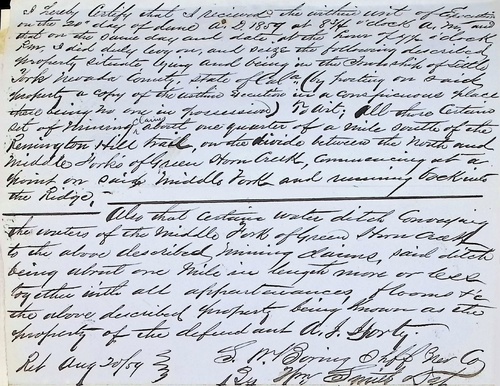 I hereby Certify that I received the within writ of Execution
on the 20th day of June A.D. 1859 at 8 3/4 o'clock A.M. and
that on the same day and date at the hour of o'clock
P.M. I did duly levy on, and seize the following described
property situate lying and being in the Township of Little
York Nevada County, State of Cala (by posting on said
property a copy of the within Execution in a conspicuous place
there being no one in possession) To Wit; All those Certain
set of Mining Claims about one quarter of a mile south of the
Remington Hill trail, on the divide between the North and
Middle Forks of Green Horn Creek, Commencing at a
point on said Middle Fork and running back into
the Ridge.
Also that Certain water ditch Conveying
the waters of the Middle Fork of Green Horn Creek
to the above described mining claims, said ditch
being about one Mile in length more or less
together with all appurtenances, flooms &c
the above described property being known as the
property of the defendant A. J.
S. W. Boring Shff Nev Co
Ret Aug 20/59 By Wm Smith Dep